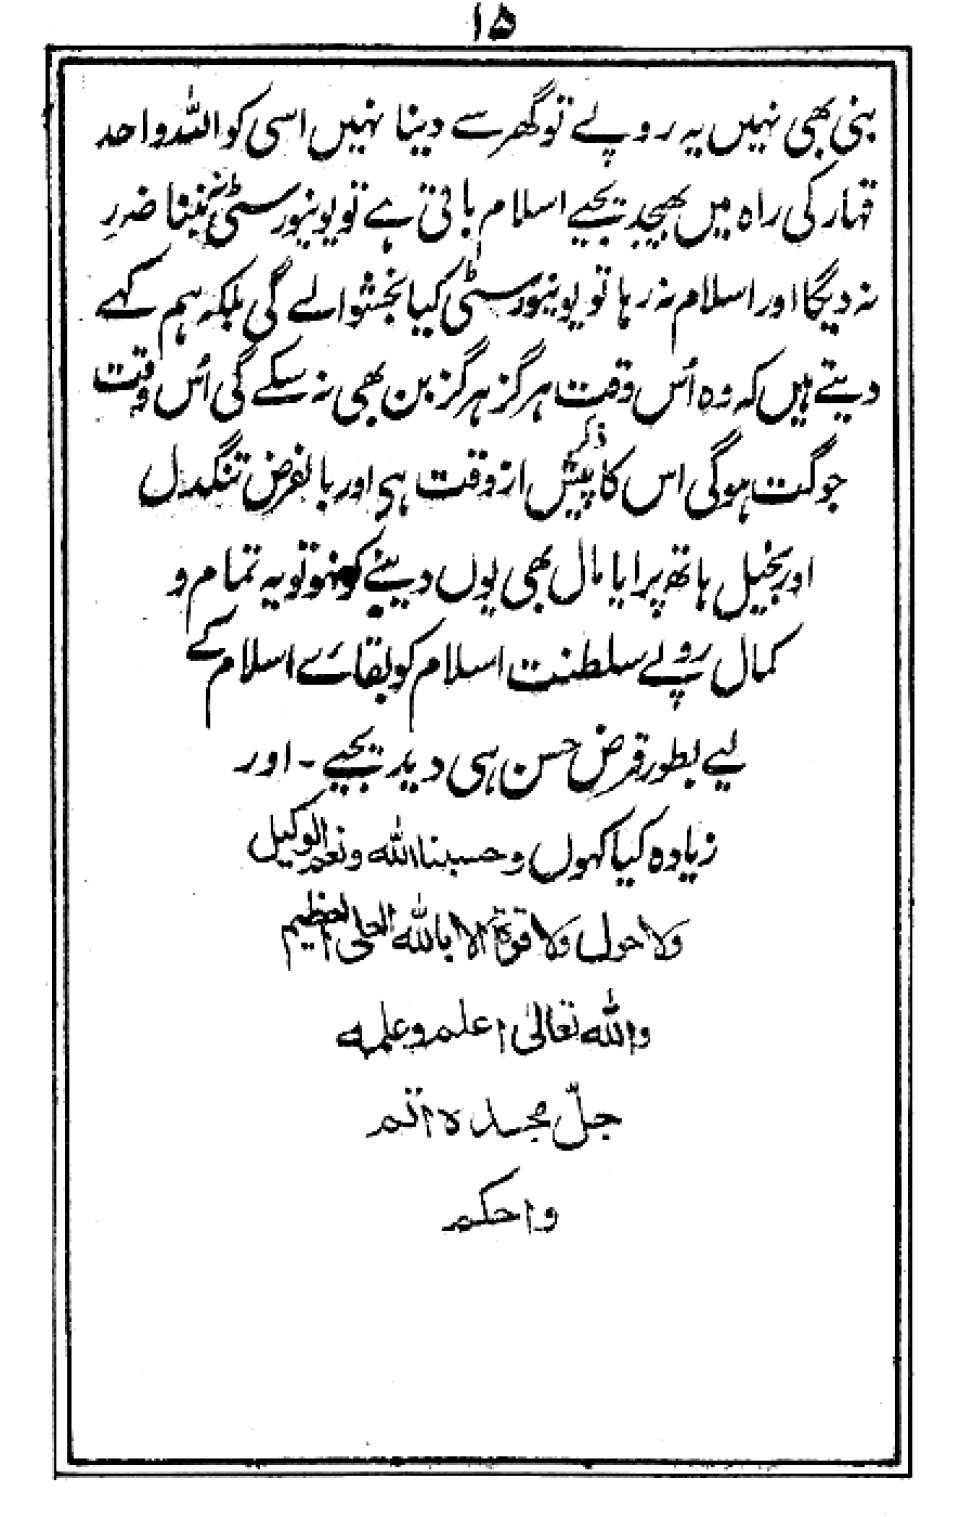 ۱۵
بنی بھی نہیں یہ روپے تو گھر سے دینا نہیں اسی کو اللہ واحد
قہار کی راہ میں بھیجدیجیے اسلام باقی ہے تو یونیورسٹی نہ بننا ضرر
نہ دیگا اور اسلام نہ رہا تو یونیورسٹی کیا بخشوالے گی بلکہ ہم کہے
دیتے ہیں کہ وہ اُس وقت ہرگز ہرگز بن بھی نہ سکے گی اُس وقت
جو گت ہوگی اس کا ذکر پیش از وقت ہی اور بالفرض تنگدل
اور بخیل ہاتھ پرایا مال بھی یوں دینے کو نہو تو یہ تمام و
کمال روپے سلطنت اسلام کو بقائے اسلام کے
لیے بطور قرض حسن ہی دیدیجیے ۔ اور
زیادہ کیا کہوں وحسبنا اللہ ونعم الوکیل
ولا حول ولا قوۃ الا باللہ العلی العظیم
واللہ تعالیٰ اعلم وعلمہ
جلّ مجدہ اتم
واحکم